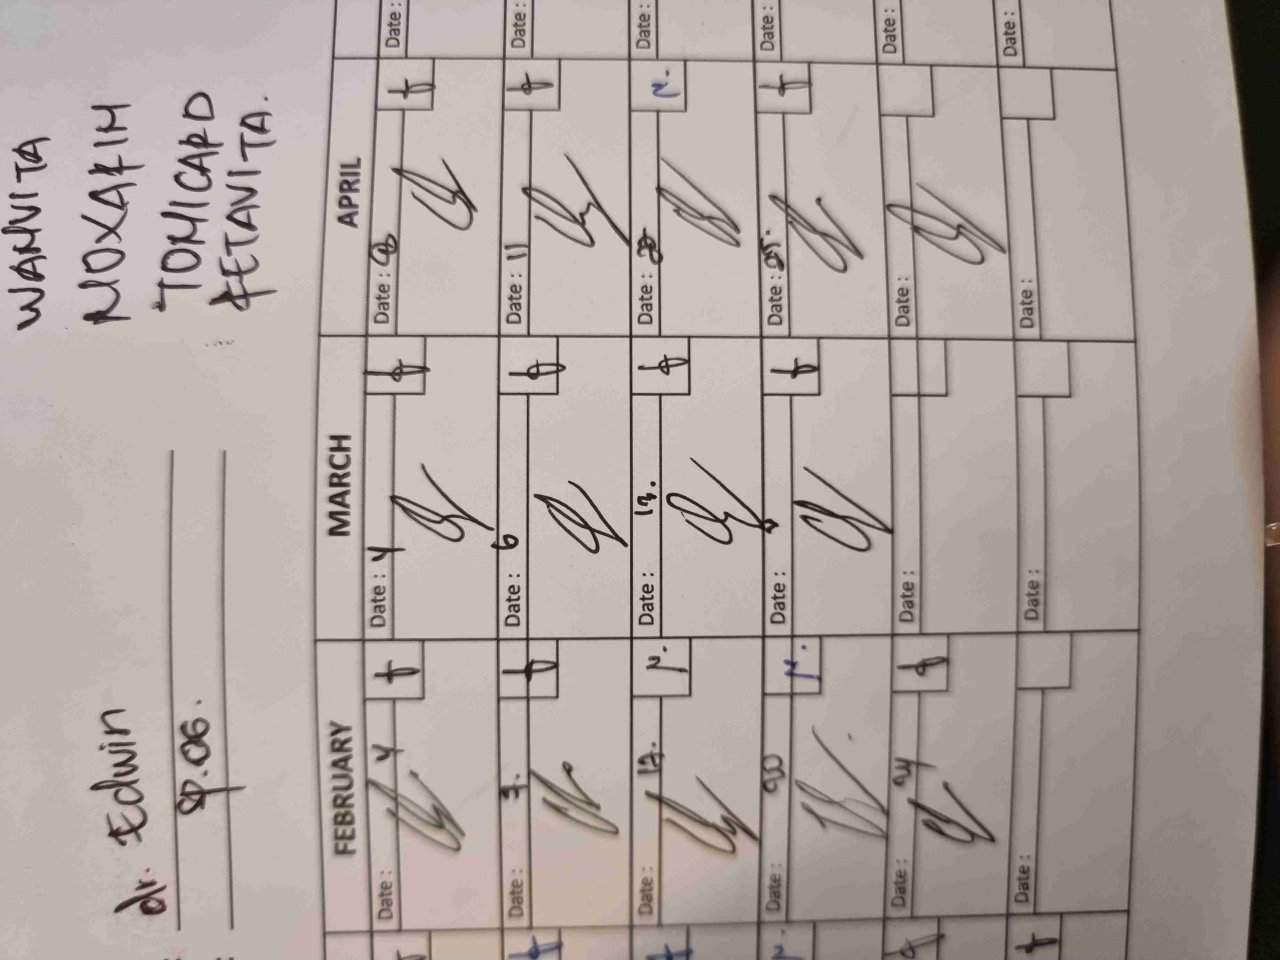 WANVITA
NOXAFIM
TOMICARD
FETAVITA.
dr. Edwin
SP.OG.
FEBRUARY MARCH APRIL
Date: 4 f Date: 4 f Date: 8 f Date:
Date: 7. f Date: 6 f Date: 11 f Date:
Date: 12. N. Date: 13. f Date: N. Date:
Date: 20 N. Date: f Date: 25. f Date:
Date: 24 f Date: Date: Date:
Date: Date: Date: Date: